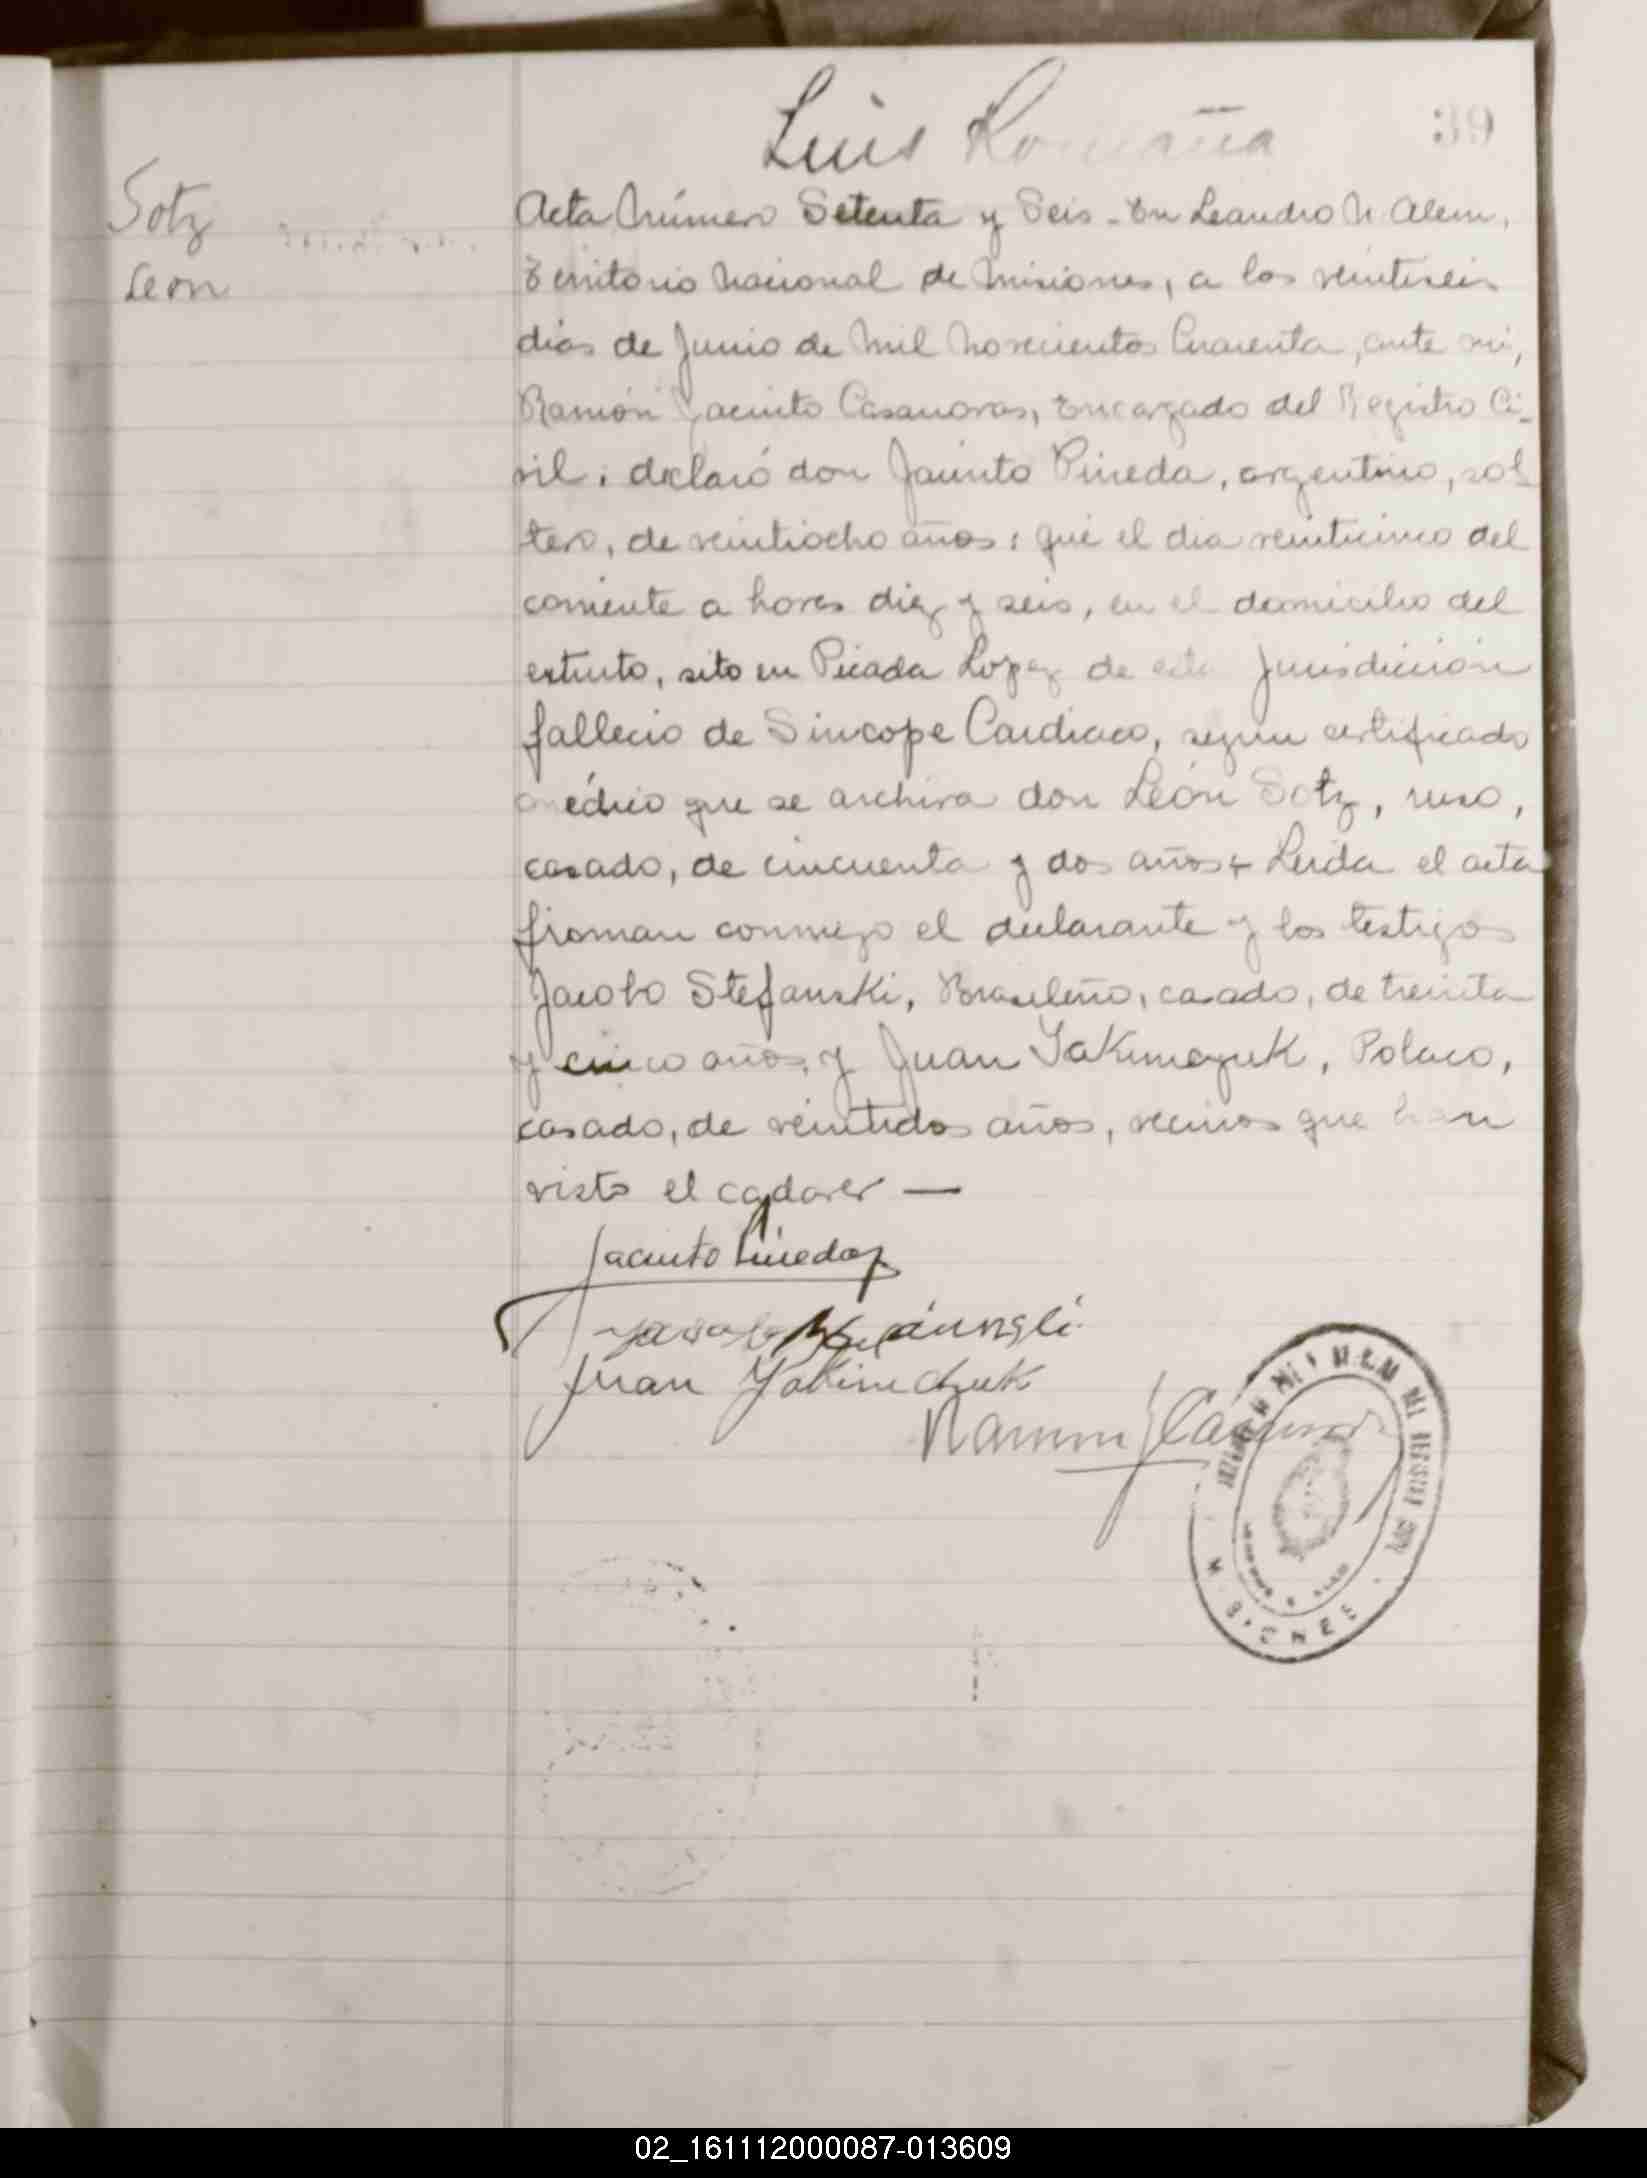 Luis Romaña
39
Sotz
Leon
Acta Número Setenta y Seis - En Leandro N. Alem,
Territorio Nacional de Misiones, a los veintiseis
días de Junio de Mil Novecientos Cuarenta, ante mi,
Ramón Jacinto Casanovas, Encargado del Registro Ci-
vil; declaró don Jacinto Pineda, argentino, sol
tero, de veintiocho años: que el dia veinticinco del
corriente a horas diez y seis, en el domicilio del
extinto, sito en Picada Lopez de esta Jurisdicción
falleció de Sincope Cardiaco, segun certificado
médico que se archiva don León Sotz, ruso,
casado, de cincuenta y dos años + Leida el acta
firman conmigo el declarante y los testigos
Jacobo Stefanski, Brasileño, casado, de treinta
y cinco años, y Juan Yakimezuk, Polaco,
casado, de veintidos años, vecinos que han
visto el cadaver —
Jacinto Pineda
Juan Yakimchuk
Ramon J Casanovas
02_161112000087-013609